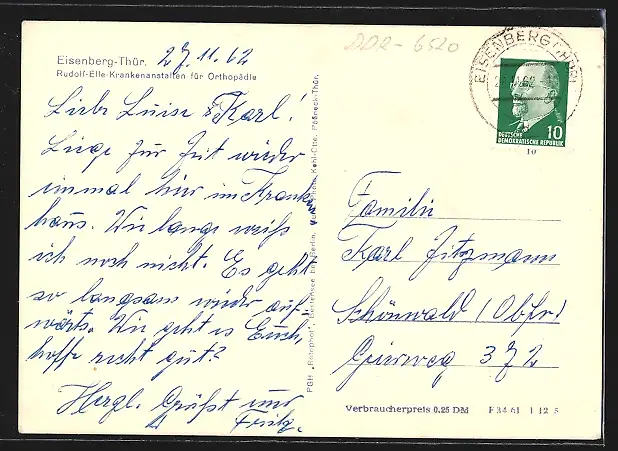 Eisenberg-Thür. 27.11.62
Rudolf-Elle-Krankenanstalten für Orthopädie
Liebe Luise & Karl!
Liege zur Zeit wieder
einmal hier im Kranken
haus. Wie lange weiß
ich noch nicht. Es geht
so langsam wieder auf-
wärts. Wie geht es Euch,
hoffe recht gut?
Herzl. Grüßt
Fritz.
PGH „Rotophot", Bestensee bei Berlin.
Pößneck-Thür.
DDR - 6520
EISENBERG (THÜR)
DEUTSCHE
DEMOKRATISCHE REPUBLIK
10
10
Familie
Karl Fitzmann
Schönwald (Obfr)
372
Verbraucherpreis 0.25 DM F 34 61 1 12 5